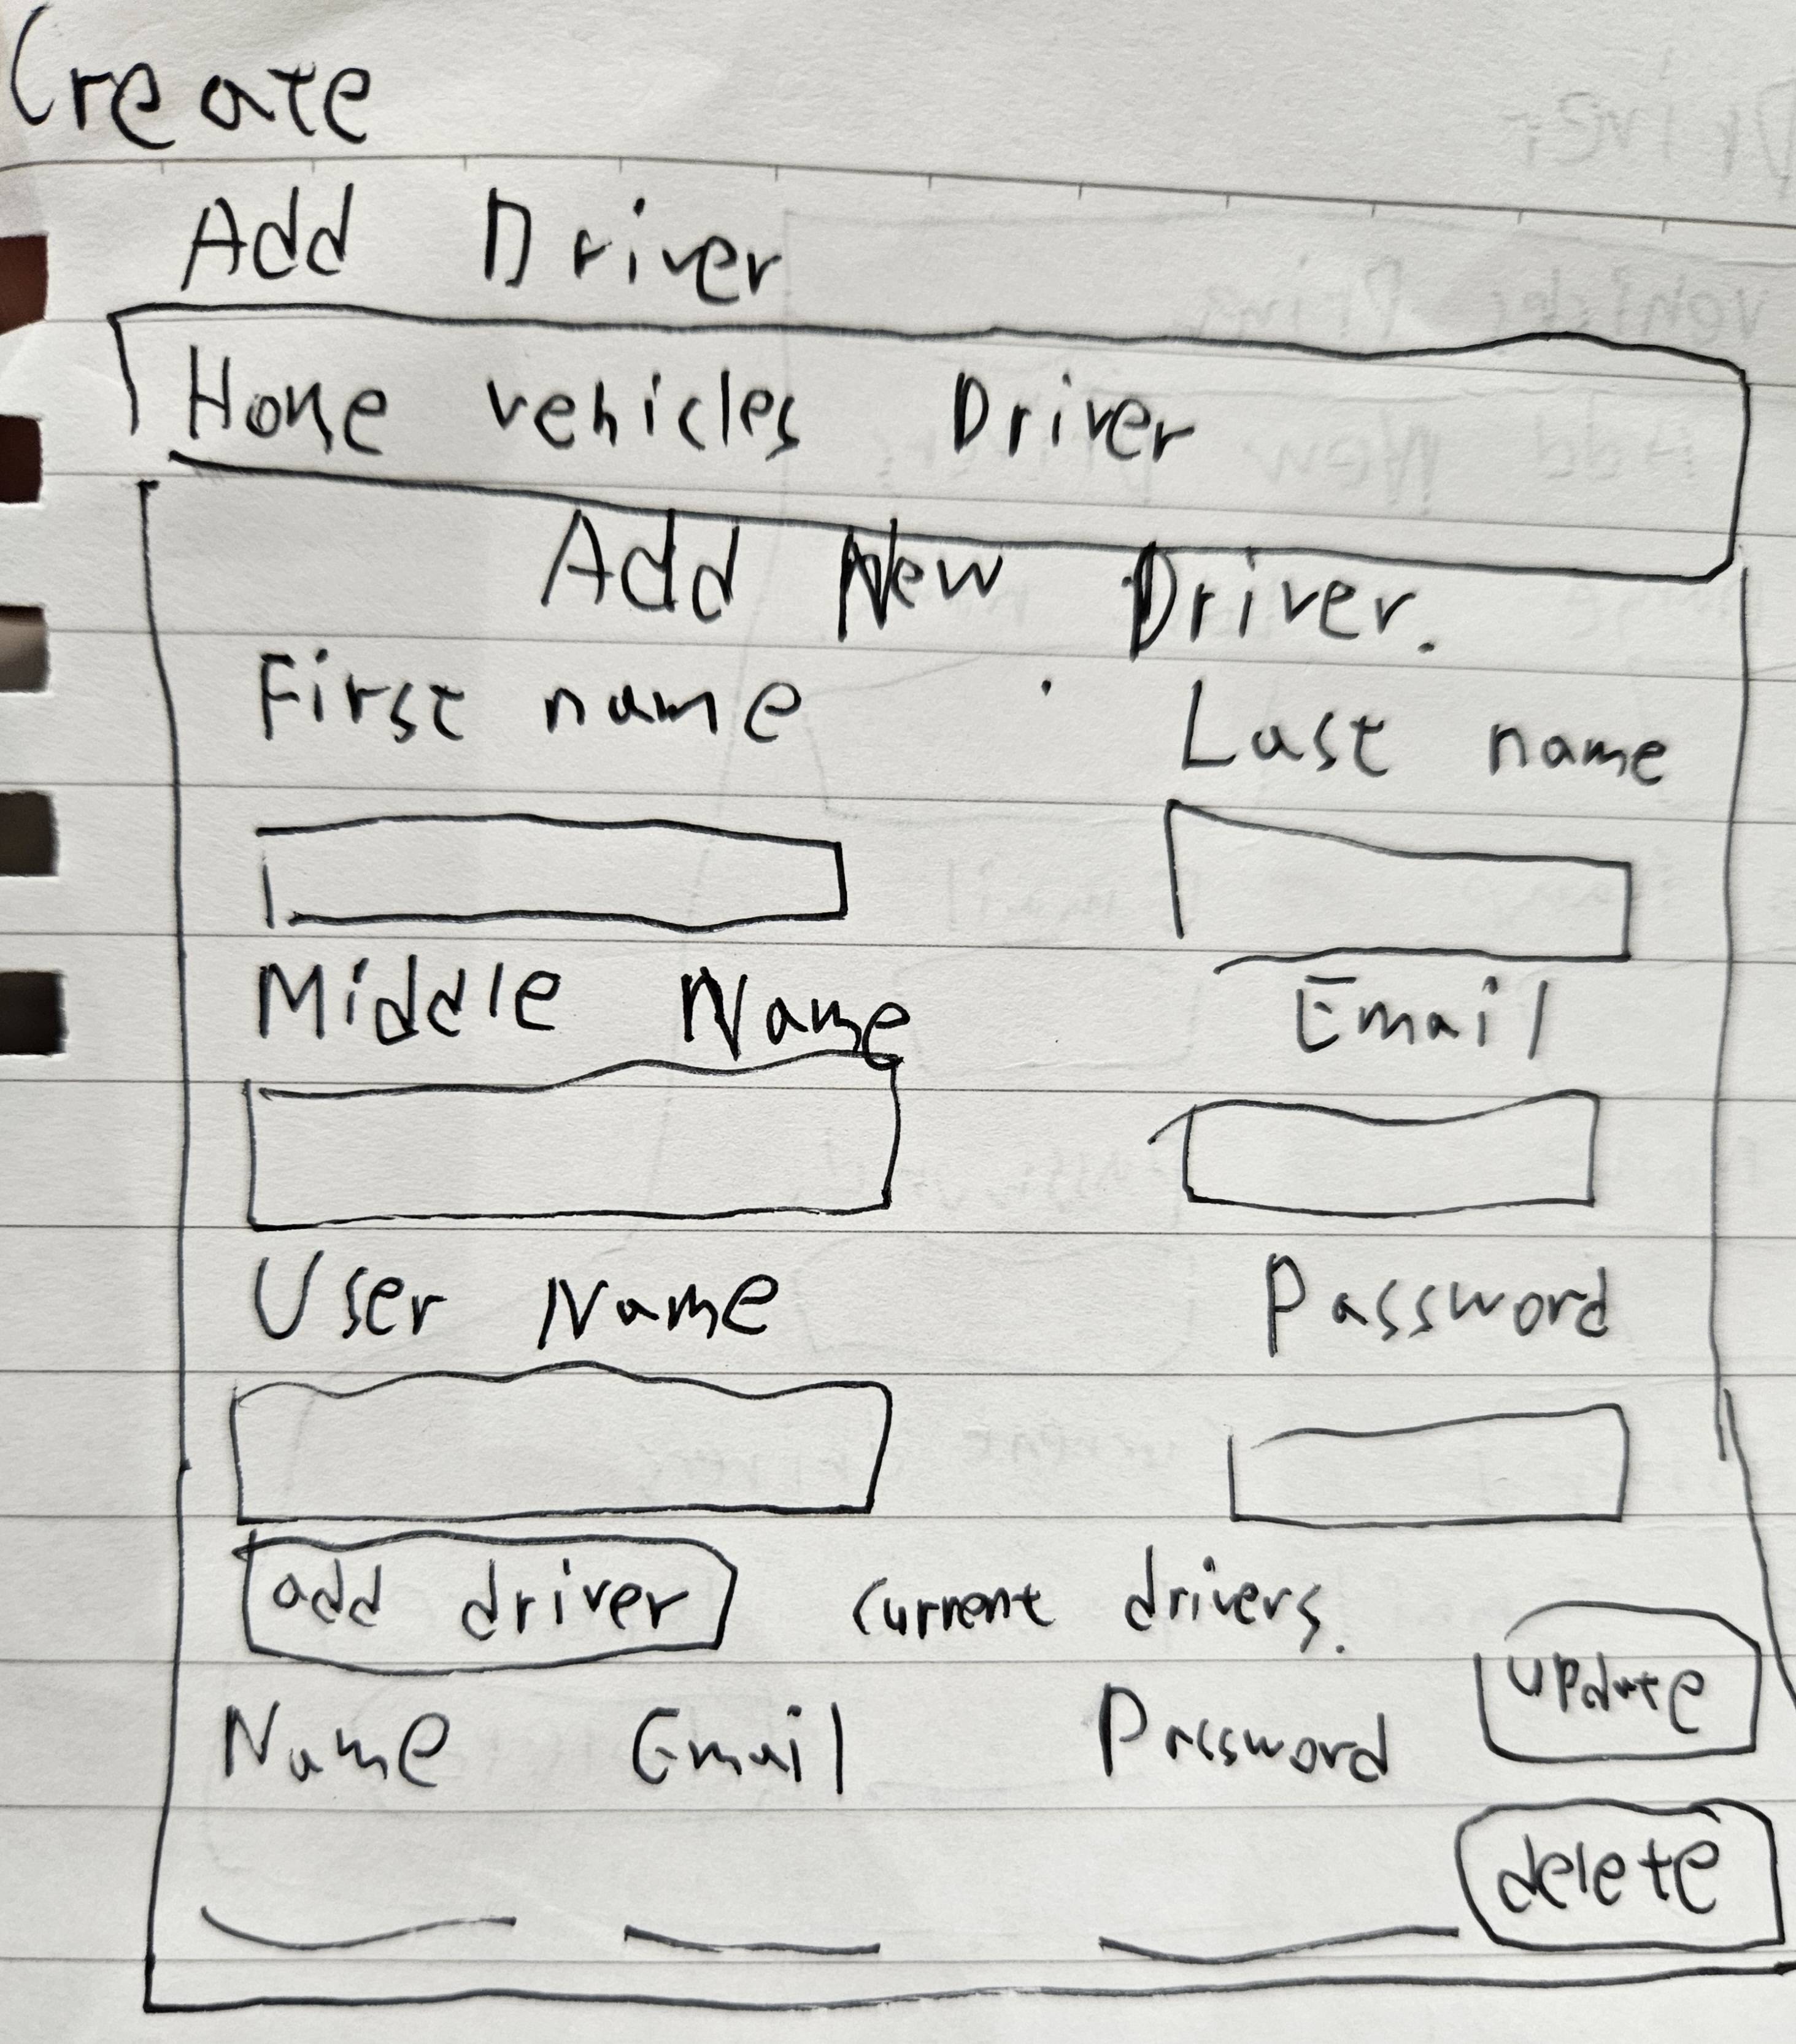 Create
Add Driver
Home vehicles Driver
Add New Driver.
First name Last name
Middle Name Email
User Name Password
add driver current drivers.
update
Name Email Password
delete